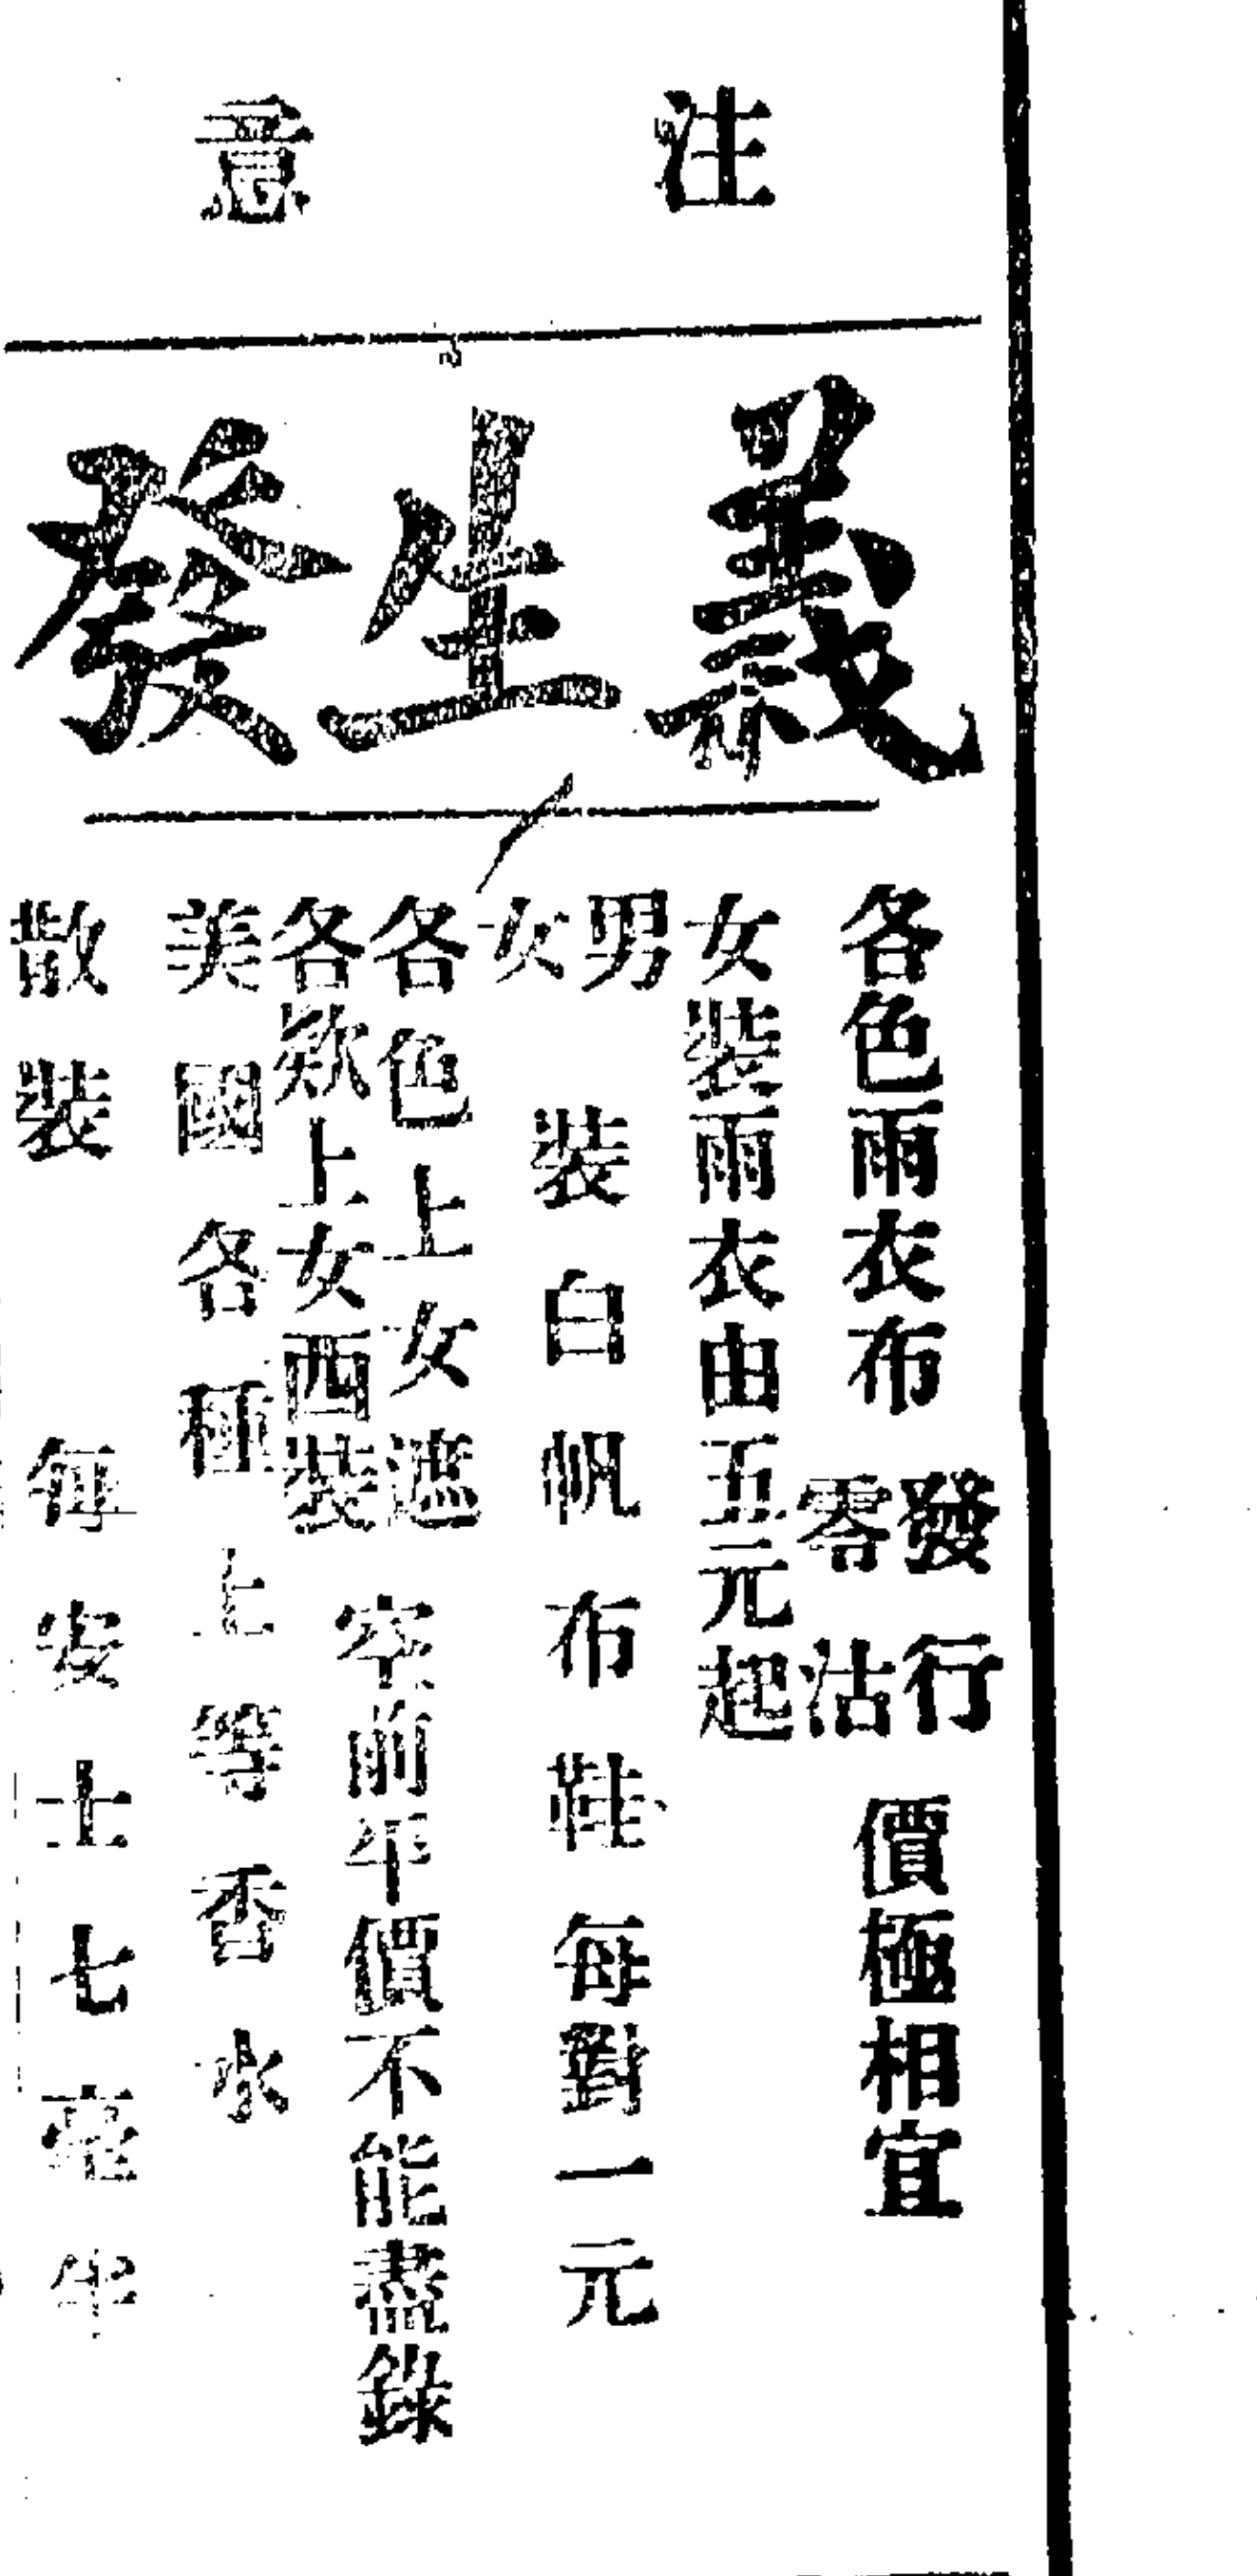 注意
義生發
各色雨衣布 發行 零沽 價極相宜
女裝雨衣由五元起
男女裝白帆布鞋每對一元
各色上女遮
各欵上女西裝
空前平價不能盡錄
美國各種上等香水
散裝 每安士七毫半